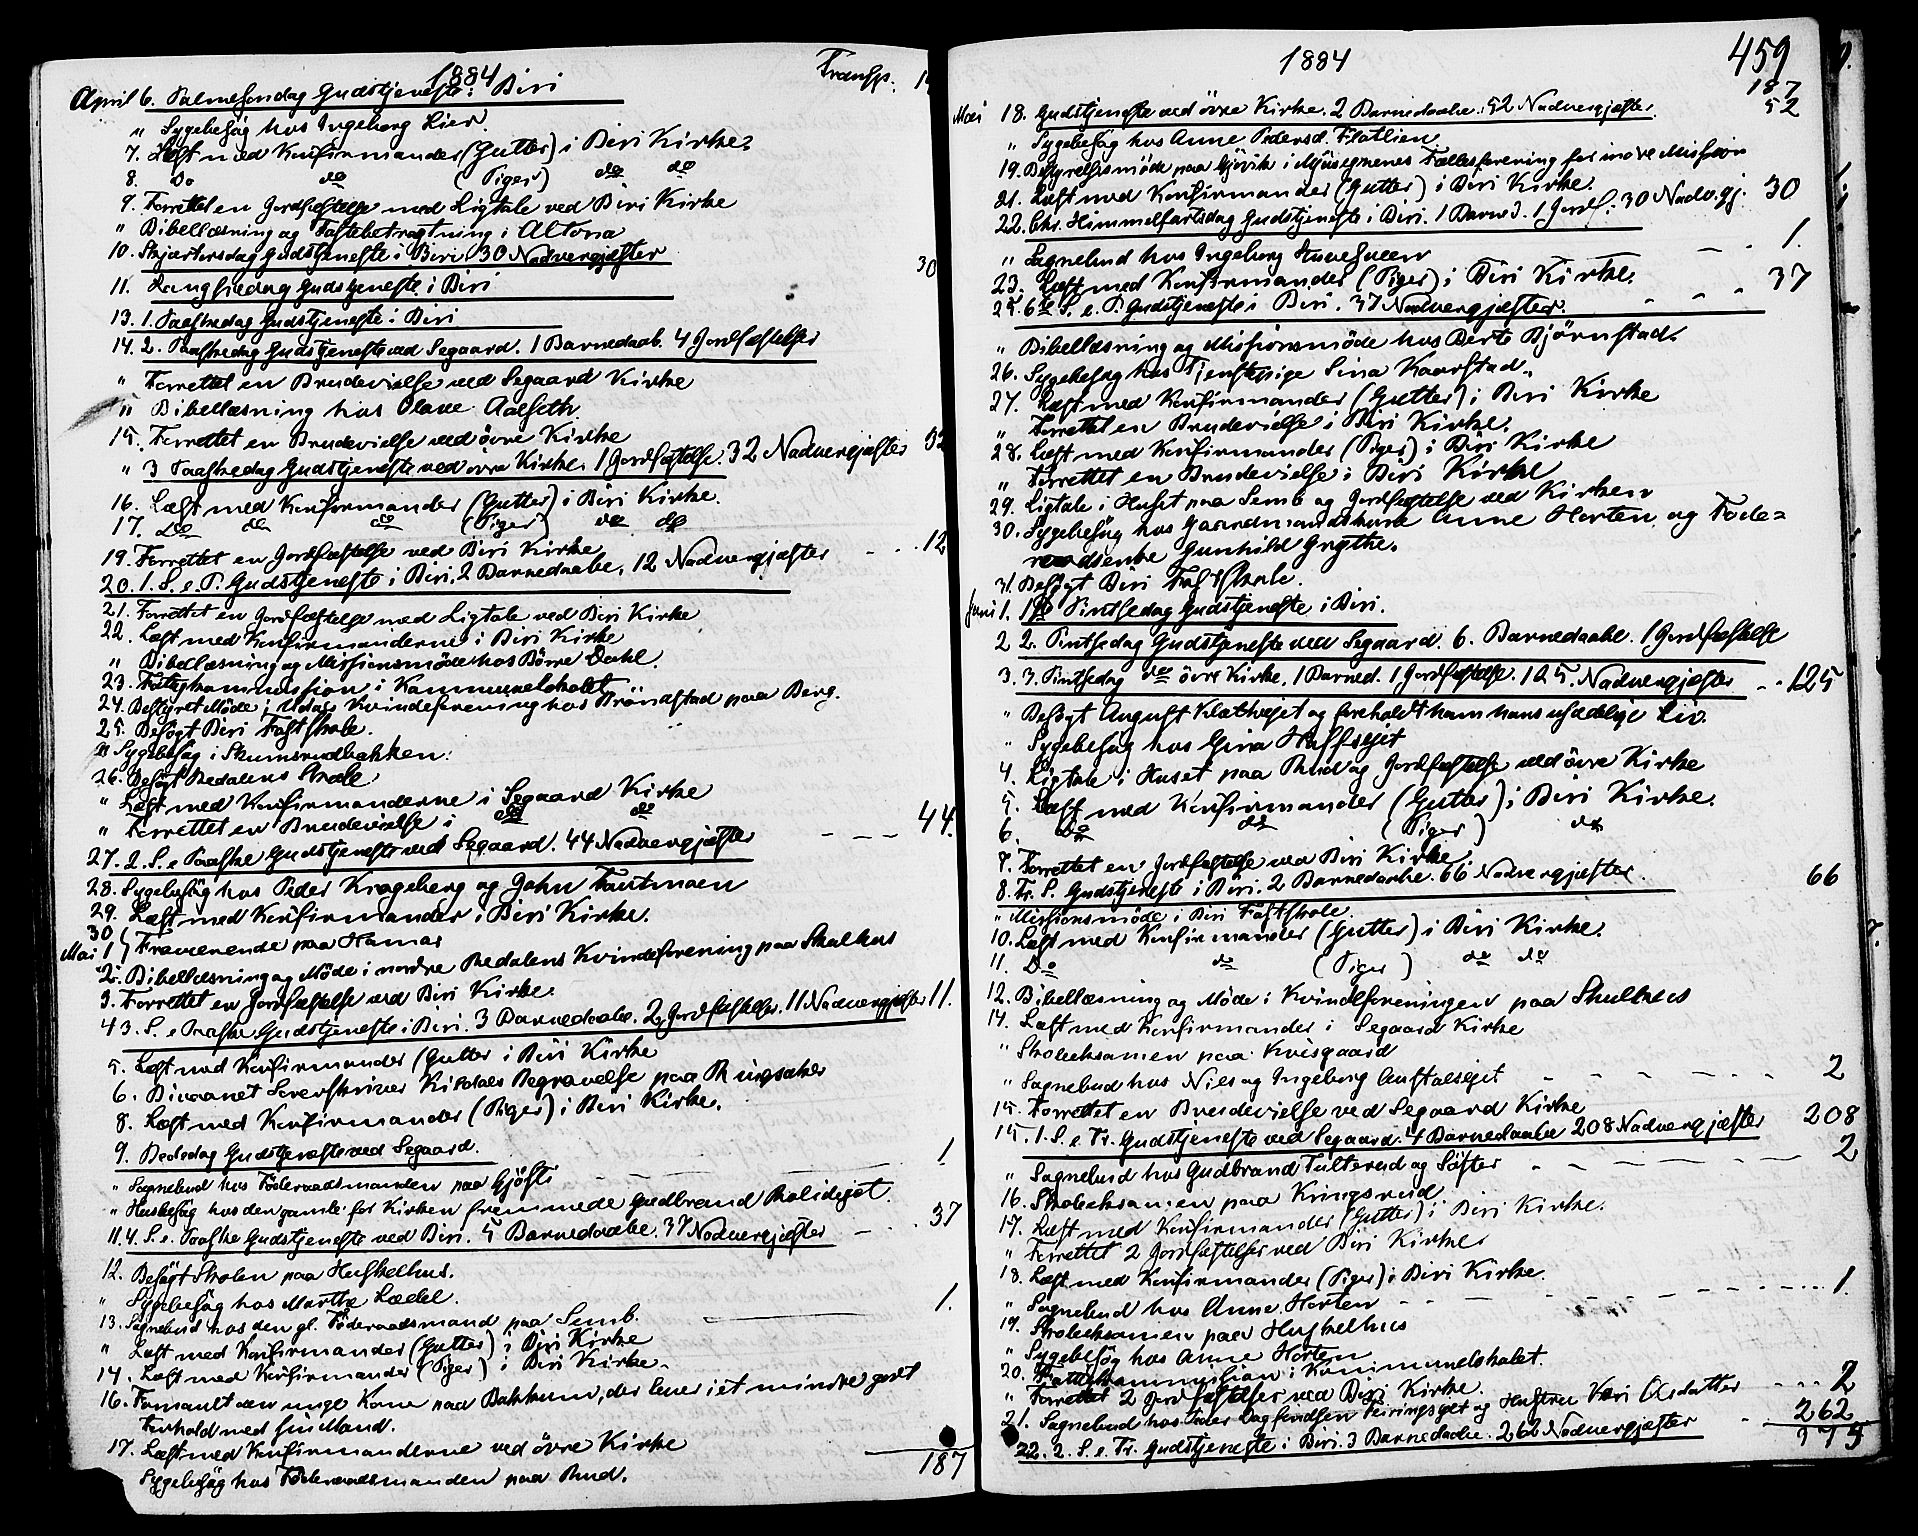 1884 Transp.
April 6. Palmesøndag Gudstjeneste: Biri
" Sygebesøg hos Ingeborg Lier.
7. Læst med Konfirmander (Gutter) i Biri Kirke.
8. Do do (Piger) do do
9. Forrettet en Jordfæstelse med Ligtale ved Biri Kirke
" Bibellæsning og Fastebetragtning i Altona
10. Skjærtorsdag Gudstjeneste i Biri 30 Nadvergjæster 30
11. Langfredag Gudstjeneste i Biri
13. 1. Paaskedag Gudstjeneste i Biri
14. 2. Paaskedag Gudstjeneste ved Segaard. 1 Barnedaab. 4 Jordfæstelser
" Forrettet en Brudevielse ved Segaard Kirke
" Bibellæsning hos Olave Aalseth.
15. Forrettet en Brudevielse ved øvre Kirke
" 3 Paaskedag Gudstjeneste ved øvre Kirke. 1 Jordfæstelse. 32 Nadvergjæster 32
16. Læst med Konfirmander (Gutter) i Biri Kirke.
17. do do do (Piger) do do
19. Forrettet en Jordfæstelse ved Biri Kirke
20. 1. S. e P. Gudstjeneste i Biri. 2 Barnedaabe, 12 Nadvergjæster 12
21. Forrettet en Jordfæstelse med Ligtale ved Biri Kirke
22. Læst med Konfirmanderne i Biri Kirke
" Bibellæsning og Missionsmöde hos Börre Dahl.
23. Fattigkommission i Kommunelokalet
24. Bestyret Möde i Udaes Kvindeforening hos Bröndstad paa Berg.
25. Besögt Biri Fastskole.
" Sygebesøg i Skumsrudbakken.
26. Besögt Redalens Skole
" Læst med Konfirmanderne i Segaard Kirke
" Forrettet en Brudevielse i do do
27. 2. S. e Paaske Gudstjeneste ved Segaard. 44 Nadvergjæster 44.
28. Sygebesög hos Peder Krageberg og John Fautmoen
29. Læst med Konfirmander i Biri Kirke.
30
Mai 1 } Fraværende paa Hamar
2. Bibellæsning og Möde i nordre Redalens Kvindeforening paa Skolhus
3. Forrettet en Jordfæstelse ved Biri Kirke.
4 3. S. e Paaske Gudstjeneste i Biri. 3 Barnedaabe. 2 Jordfæstelser. 11 Nadvergjæster 11.
5. Læst med Konfirmander (Gutter i Biri Kirke
6. Bivaanet Sorenskriver Kildals Begravelse paa Ringsaker
8. Læst med Konfirmander (Piger) i Biri Kirke.
9. Bededag Gudstjeneste ved Segaard.
" Sognebud hos Föderaadsmanden paa Gjösti 1
" Husbesøg hos den gamle for Kirken fremmede Gudbrand
11. 4. S. e. Paaske Gudstjeneste ved Biri. 5 Barnedaabe. 37 Nadvergjæster 37
12. Besögt Skolen paa Huskelhus.
" Sygebesög hos Marthe Lædel.
13. Sognebud hos den gl. Föderaadsmand paa Semb. 1.
" Læst med Konfirmander (Gutter) i Biri Kirke
14. Læst med Konfirmander (Piger) i Biri Kirke.
16. Formanet den unge Kone paa Bakkum, der lever i et mindre godt
Forhold med sin Mand.
17. Læst med Konfirmanderne ved øvre Kirke
Sygebesög hos Föderaadsmanden paa Rud. 187
1884 459
187
Mai 18. Gudstjeneste ved övre Kirke. 2 Barnedaabe. 52 Nadvergjæster. 52
" Sygebesög hos Anne Pedersd. Flatlien.
19. Bestyrelsesmöde paa Gjövik i Mjösegnenes Fællesforening for indre Mission
21. Læst med Konfirmander (Gutter) i Biri Kirke.
22. Chr. Himmelfartsdag Gudstjeneste i Biri. 1 Barned. 1 Jordf. 30 Nadv.gj. 30
" Sognebud hos Ingeborg 1.
23. Læst med Konfirmander (Piger) i Biri Kirke.
25. 6te S. e. P. Gudstjeneste i Biri. 37 Nadvergjæster. 37
" Bibellæsning og Missionsmöde hos Berte Bjørnstad.
26. Sygebesøg hos Tjenstepige Sina Kaarstad.
27. Læst med Konfirmander (Gutter) i Biri Kirke
" Forrettet en Brudevielse i Biri Kirke.
28. Læst med Konfirmander (Piger) i Biri Kirke
" Forrettet en Brudevielse i Biri Kirke
29. Ligtale i Huset paa Semb og Jordfæstelse ved Kirken
30. Sygebesög hos Gaardmandskone Anne Horten og Föde=
raadsenke Gunhild Grythe.
31. Besögt Biri Fastskole.
Juni 1. 1ste Pintsedag Gudstjeneste i Biri.
2 2. Pintsedag Gudstjeneste ved Segaard. 6. Barnedaabe. 1 Jordfæstelse
3. 3. Pintsedag do övre Kirke, 1 Barned. 1 Jordfæstelse. 125. Nadvergjæster 125
" Besögt August Klathejet og foreholdt ham hans usædelige Liv.
" Sygebesøg hos Gina
4. Ligtale i Huset paa Rud og Jordfæstelse ved øvre Kirke
5. Læst med Konfirmander (Gutter) i Biri Kirke.
6. do do (Piger) do
7. Forrettet en Jordfæstelse ved Biri Kirke
8. Tr. S. Gudstjeneste i Biri. 2 Barnedaabe. 66 Nadvergjæster. 66
" Missionsmöde i Biri Fastskole.
10. Læst med Konfirmander (Gutter) i Biri Kirke.
11. Do do (Piger) do do
12. Bibellæsning og Möde i Kvindeforeningen paa Skulhus
14. Læst med Konfirmander i Segaard Kirke
" Skoleeksamen paa Kvisgaard
" Sognebud hos Niels og Ingeborg 2
15. Forrettet en Brudevielse ved Segaard Kirke
15. 1. S. e Tr. Gudstjeneste ved Segaard. 4 Barnedaabe 208 Nadvergjæster 208
" Sognebud hos Gudbrand Tulterud og Söster 2
16. Skoleeksamen paa Kringsrud
17. Læst med Konfirmander (Gutter) i Biri Kirke.
" Forrettet 2 Jordfæstelser ved Biri Kirke
18. Læst med Konfirmander (Piger) i Biri Kirke.
" Sognebud hos Anne Horten 1.
19. Skoleeksamen paa Huskelhus
" Sygebesög hos Anne Horten
20. Fattigkommission i Kommunelokalet.
" Forrettet 2 Jordfæstelser ved Biri Kirke.
21. Sognebud hos Peder Dagfindsen og Hustru Kari Olsdatter 2
22. 2. S. e Tr. Gudstjeneste i Biri. 3 Barnedaabe. 262 Nadvergjæster 262
975